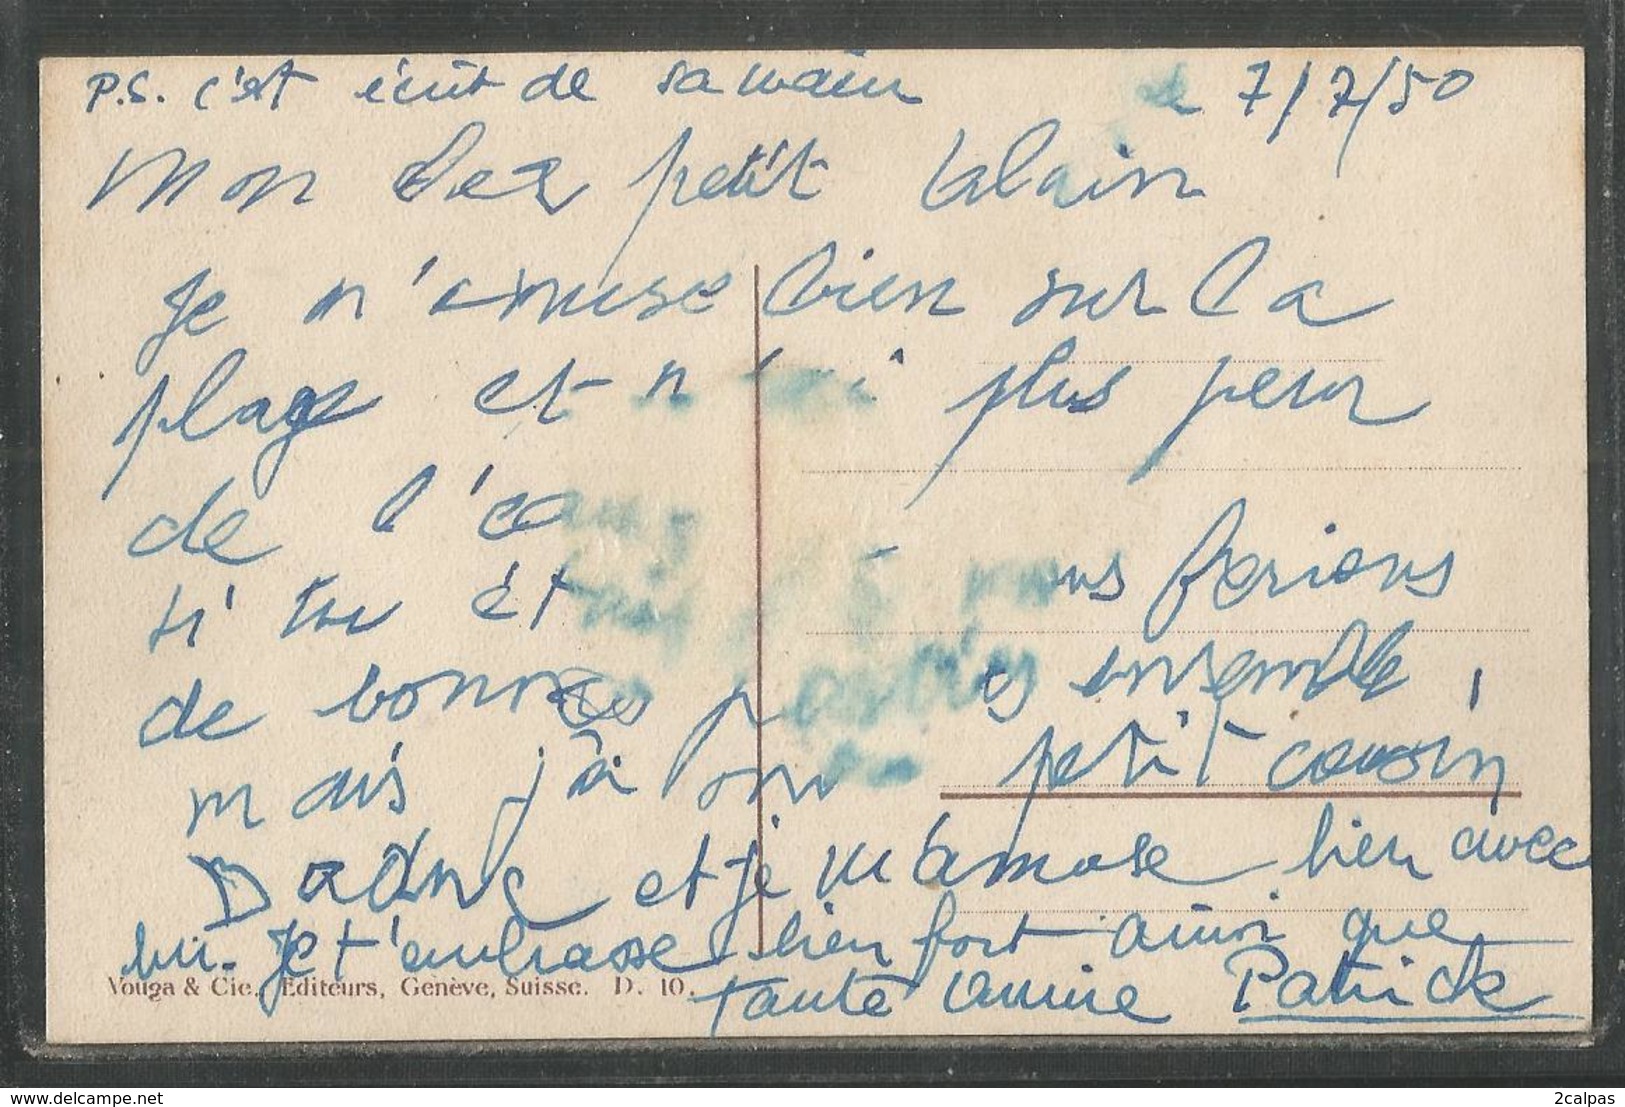 P.S. c'est écrit de sa main le 7/7/50
Mon cher petit Alain
Je m'amuse bien sur la
plage et n'ai plus peur
de l'eau
si tu ét nous ferions
de bonnes parties ensemble,
mais j'ai mon petit cousin
et je m'amuse bien avec
lui. Je t'embrasse bien fort ainsi que
tante Annie Patrick
Vouga & Cie., Editeurs, Genève, Suisse. D. 10.
2calpas